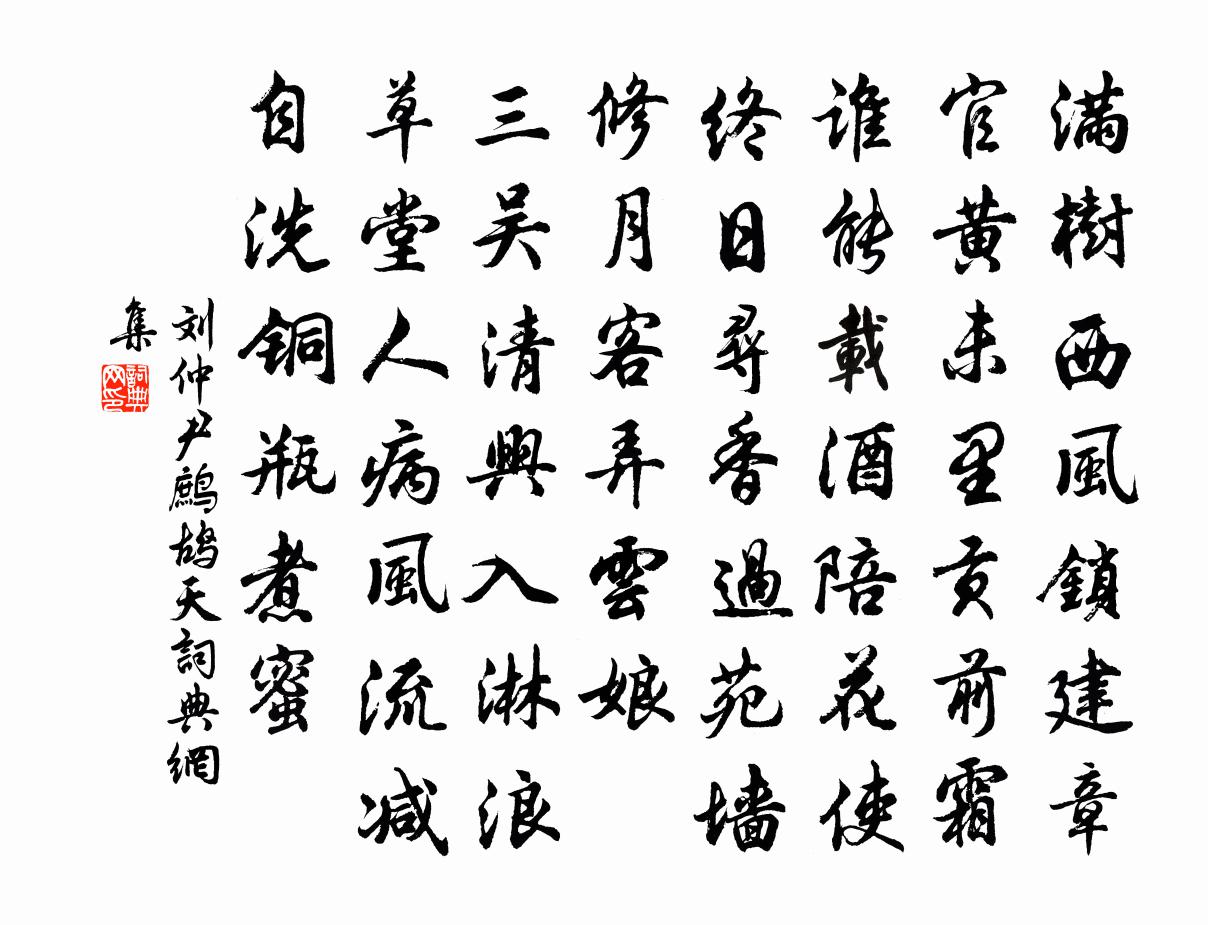 满樹西風鎖建章
官黄未里貢前霜
谁能載酒陪花使
终日尋香過苑墙
修月客弄雲娘
三吴清興入淋浪
草堂人病風流减
自洗铜瓶煮蜜
刘仲尹鷓鴣天詞典網
集
詞典网印